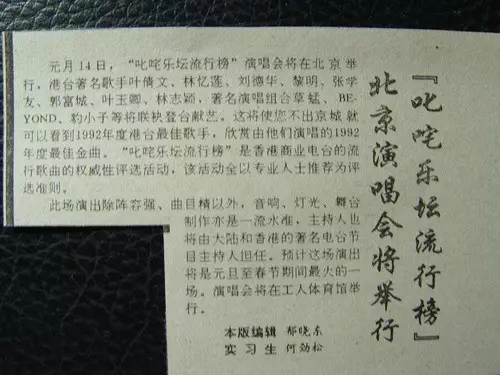 『叱咤乐坛流行榜』
北京演唱会将举行
元月14日，“叱咤乐坛流行榜”演唱会将在北京举
行，港台著名歌手叶倩文、林忆莲、刘德华、黎明、张学
友、郭富城、叶玉卿、林志颖，著名演唱组合草蜢、BE-
YOND、豹小子等将联袂登台献艺。这将使您不出京城就
可以看到1992年度港台最佳歌手，欣赏由他们演唱的1992
年度最佳金曲。“叱咤乐坛流行榜”是香港商业电台的流
行歌曲的权威性评选活动，该活动全以专业人士推荐为评
选准则。
此场演出除阵容强、曲目精以外，音响、灯光、舞台
制作亦是一流水准，主持人也
将由大陆和香港的著名电台节
目主持人担任。预计这场演出
将是元旦至春节期间最火的一
场。演唱会将在工人体育馆举
行。
本版编辑 郁晓东
实习生 何劲松